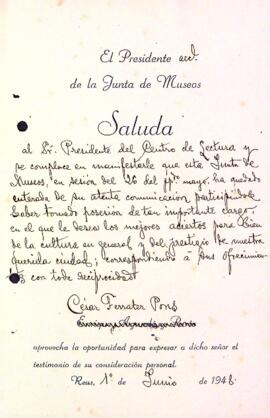 El Presidente accl.
de la Junta de Museos
Saluda
al Sr. Presidente del Centro de Lectura y
se complace en manifestarle que esta Junta de
Museos, en sesión del 26 del ppº mayo, ha quedado
enterada de su atenta comunicación participándole
haber tomado posesión de tan importante cargo,
en el que le desea los mejores aciertos para bien
de la cultura en general y del prestigio de nuestra
querida ciudad; correspondiendo a sus ofrecimien
tos con toda reciprocidad
César Ferrater Pons
aprovecha la oportunidad para expresar a dicho señor el
testimonio de su consideración personal.
Reus, 1º de Junio de 1948.